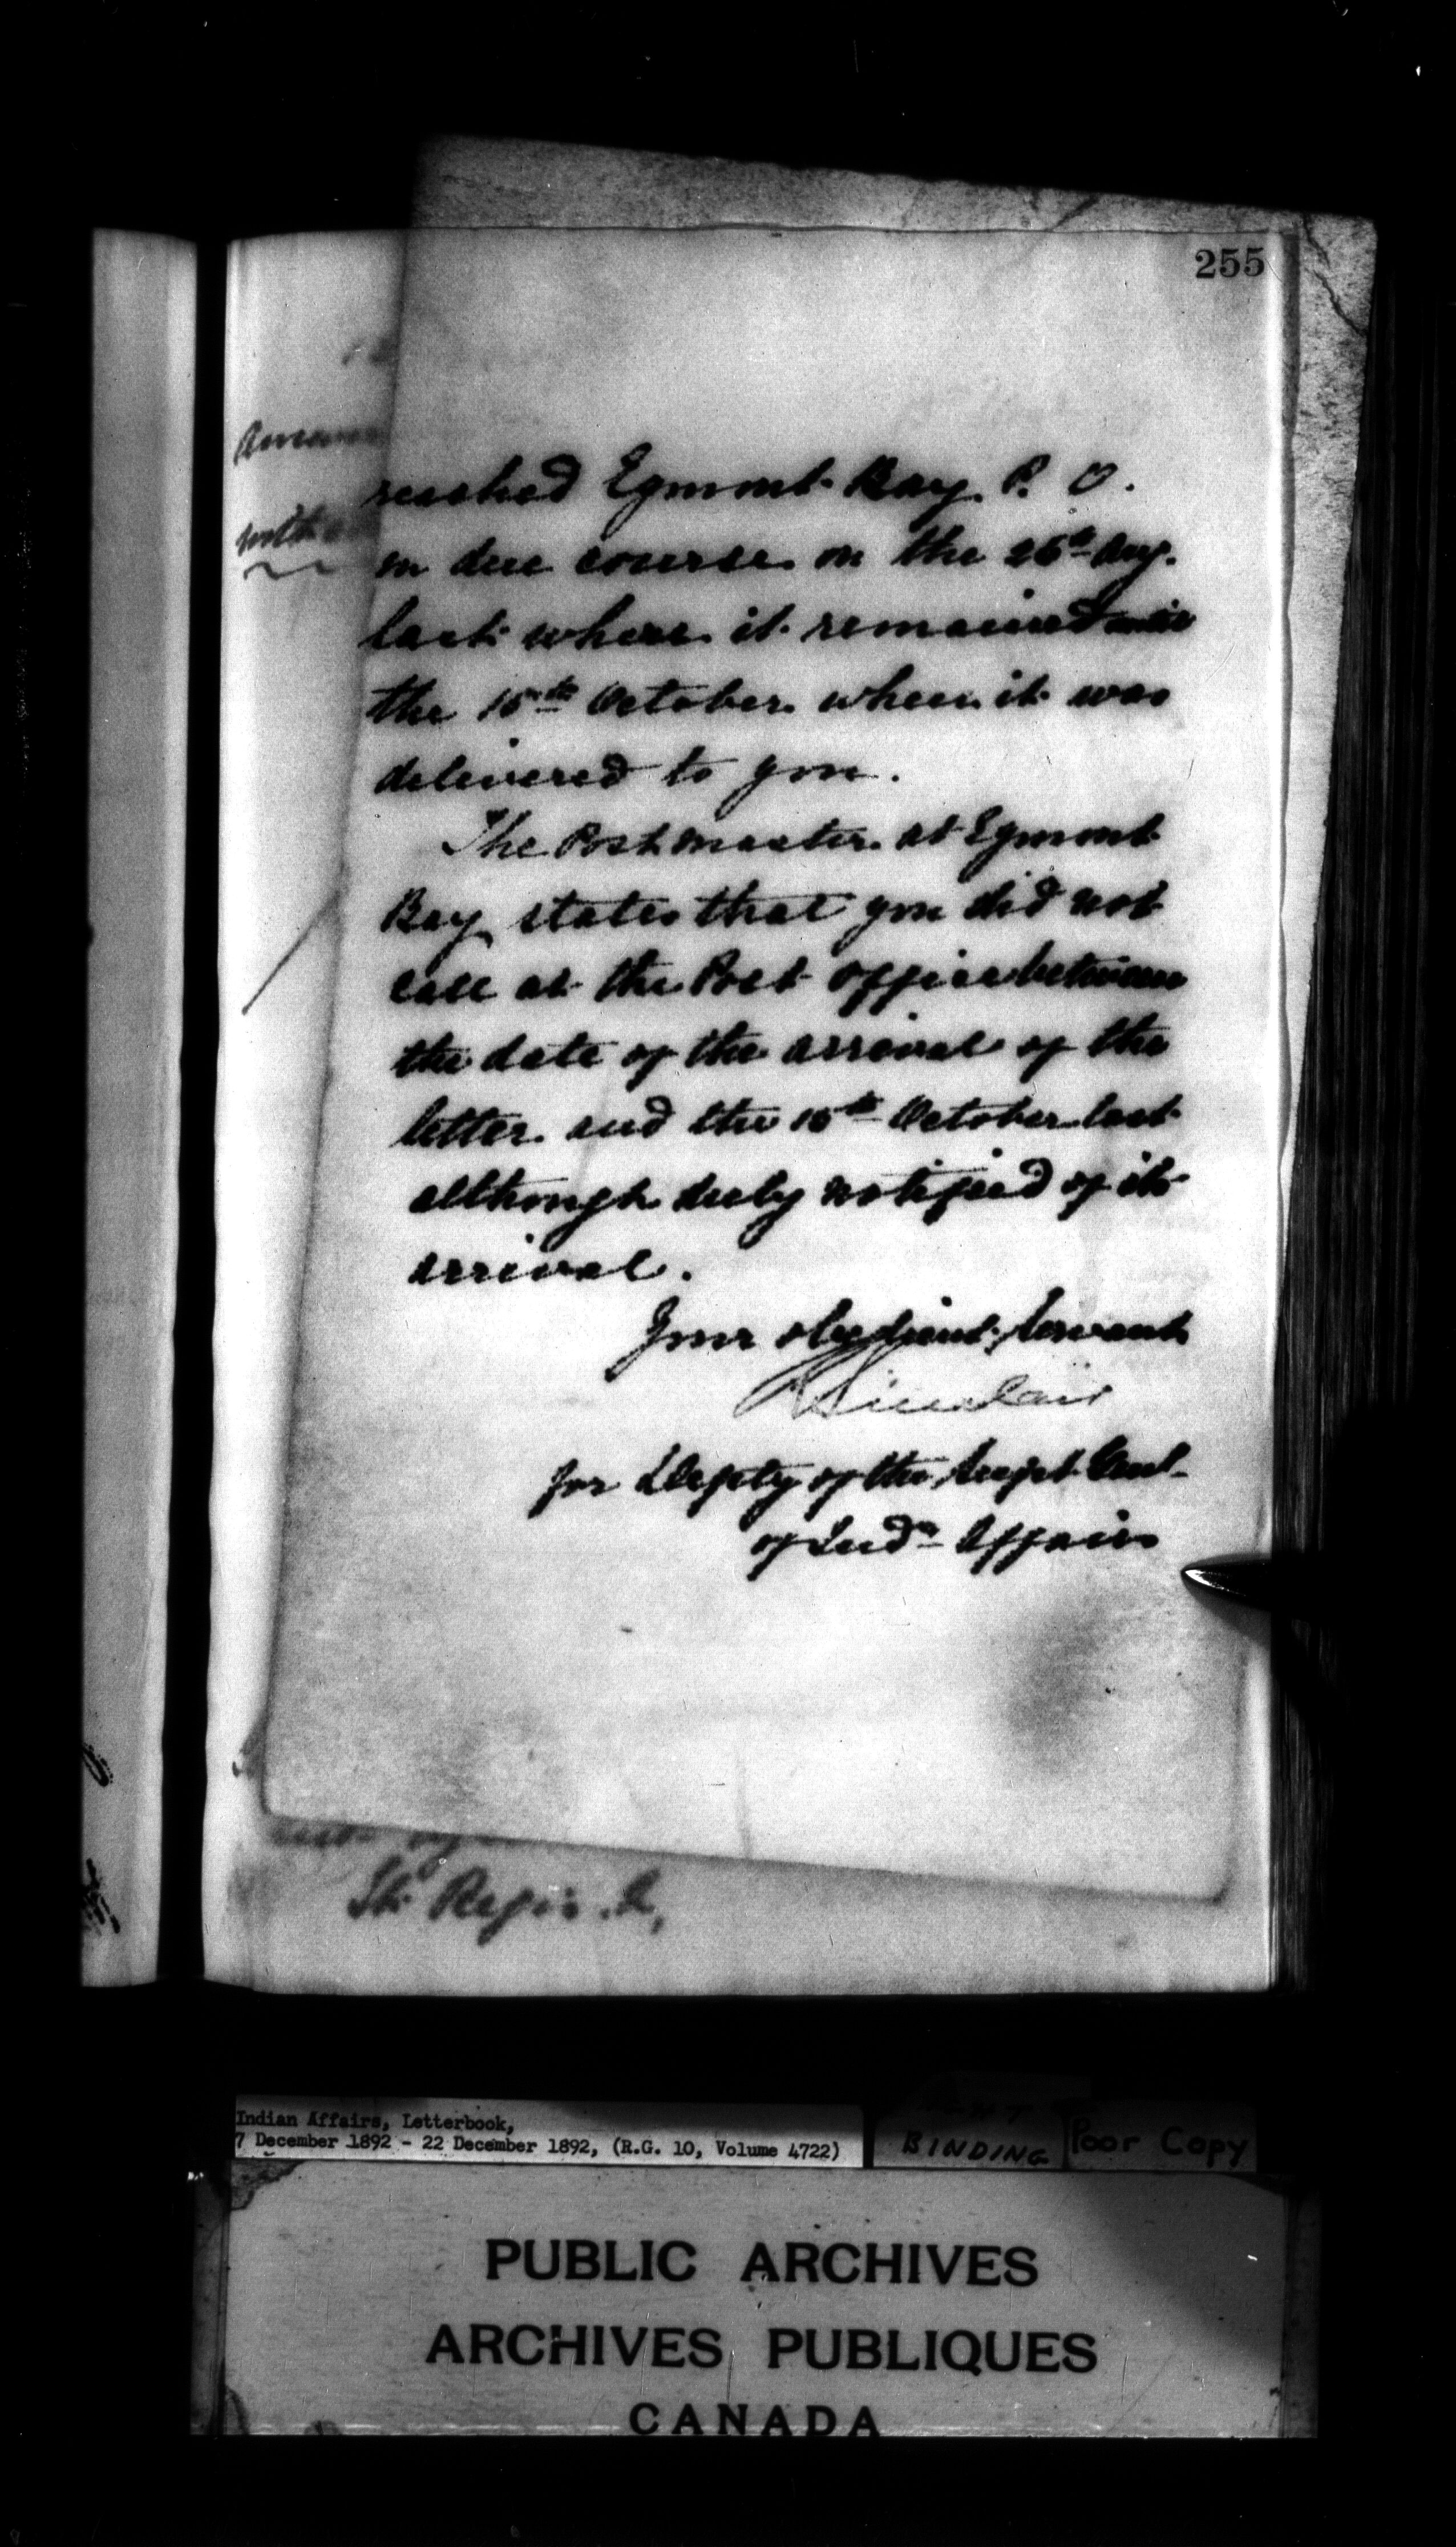 255
reached Egmont Bay P. O.
in due course on the 26th Aug.
last where it remained until
the 15th October when it was
delivered to you.
The Postmaster at Egmont
Bay states that you did not
call at the Post Office between
the date of the arrival of the
letter and the 15th October last
although duly notified of its
arrival.
Your obedient Servant
Sinclair
for Deputy of the Supt. Genl.
of Indn Affairs
St. Regis. Q,
Indian Affairs, Letterbook,
7 December 1892 - 22 December 1892, (R.G. 10, Volume 4722)
BINDING
Poor Copy
PUBLIC ARCHIVES
ARCHIVES PUBLIQUES
CANADA